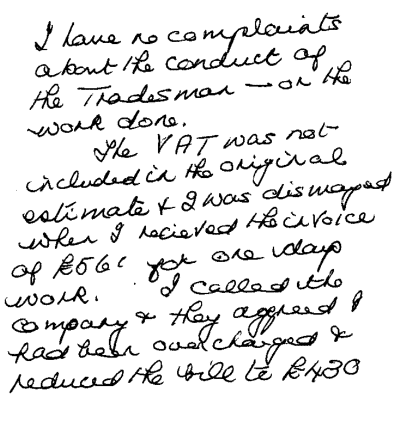 I have no complaints
about the conduct of
the Tradesman — or the
work done.
The VAT was not
included in the original
estimate & I was dismayed
when I recieved the invoice
of £561 for one days
work. I called the
company & they aggreed I
had been overcharged &
reduced the bill to £430